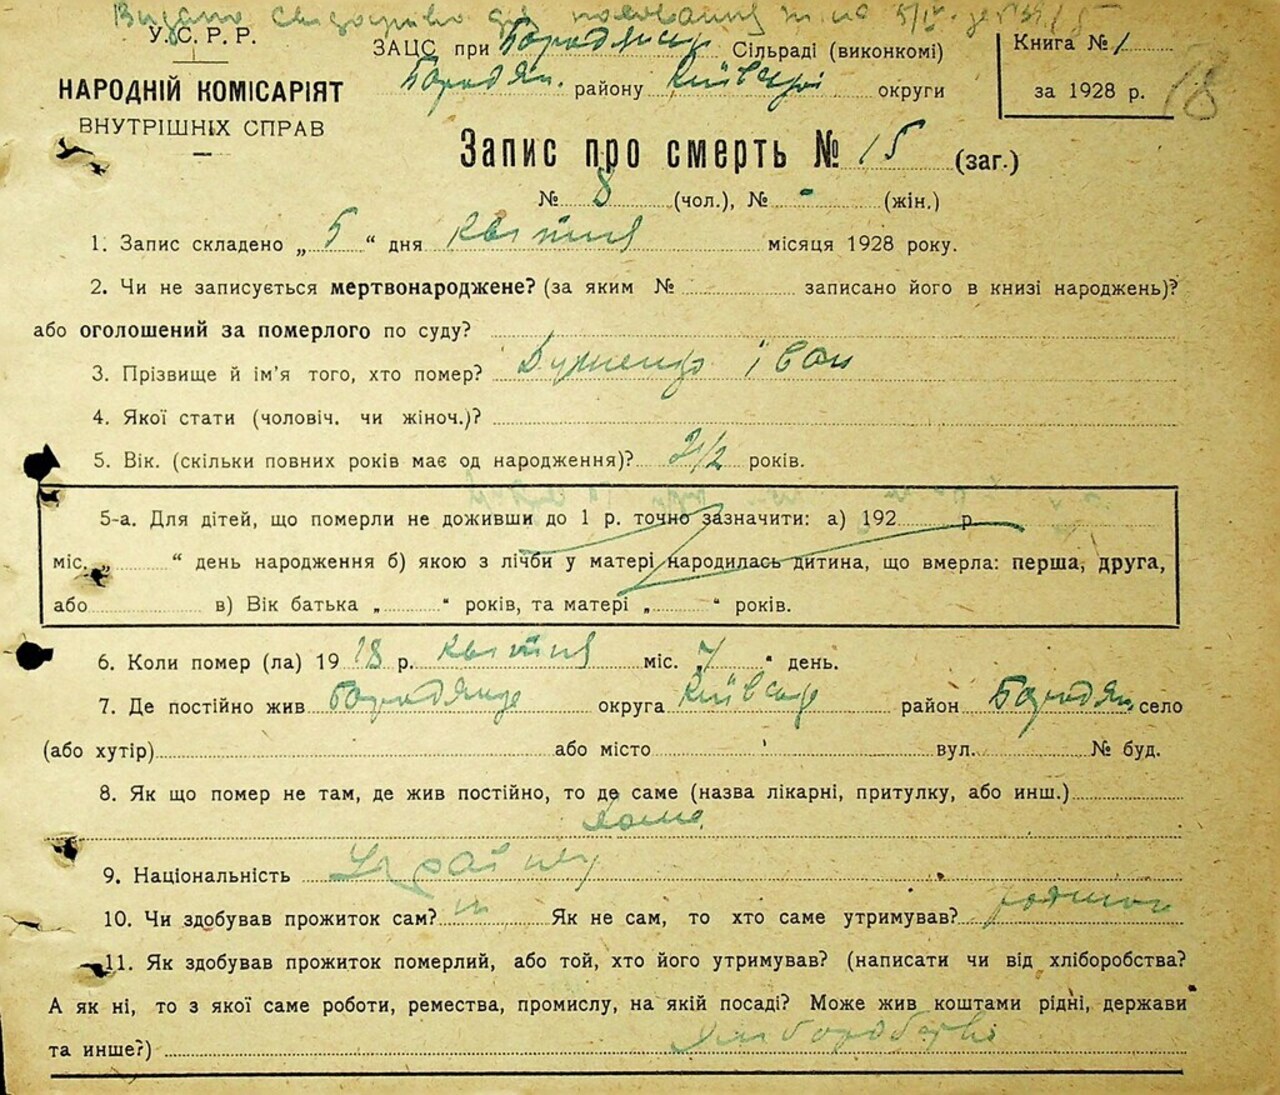 Видано свідоцтво для поховання 5/IV
У.С.Р.Р.
ЗАЦС при Бородянськ Сільраді (виконкомі)
Книга № 1
Бородян. району Київської округи
за 1928 р. 18
НАРОДНІЙ КОМІСАРІЯТ
ВНУТРІШНІХ СПРАВ
Запис про смерть № 15 (заг.)
№ 8 (чол.), № - (жін.)
1. Запис складено „ 5 “ дня квітня місяця 1928 року.
2. Чи не записується мертвонароджене? (за яким № записано його в книзі народжень)?
або оголошений за померлого по суду?
3. Прізвище й ім'я того, хто помер? Іван
4. Якої стати (чоловіч. чи жіноч.)?
5. Вік. (скільки повних років має од народження)? 2 1/2 років.
5-а. Для дітей, що померли не доживши до 1 р. точно зазначити: а) 192 р.
міс. „ “ день народження б) якою з лічби у матері народилась дитина, що вмерла: перша, друга,
або в) Вік батька „ “ років, та матері „ “ років.
6. Коли помер (ла) 19 р. квітня міс. „ “ день.
7. Де постійно жив Бородянці округа Київська район Бородян. село
(або хутір) або місто вул. № буд.
8. Як що помер не там, де жив постійно, то де саме (назва лікарні, притулку, або инш.)
дома
9. Національність Україн
10. Чи здобував прожиток сам? ні Як не сам, то хто саме утримував? батько
11. Як здобував прожиток померлий, або той, хто його утримував? (написати чи від хліборобства?
А як ні, то з якої саме роботи, ремества, промислу, на якій посаді? Може жив коштами рідні, держави
та инше?) хліборобства